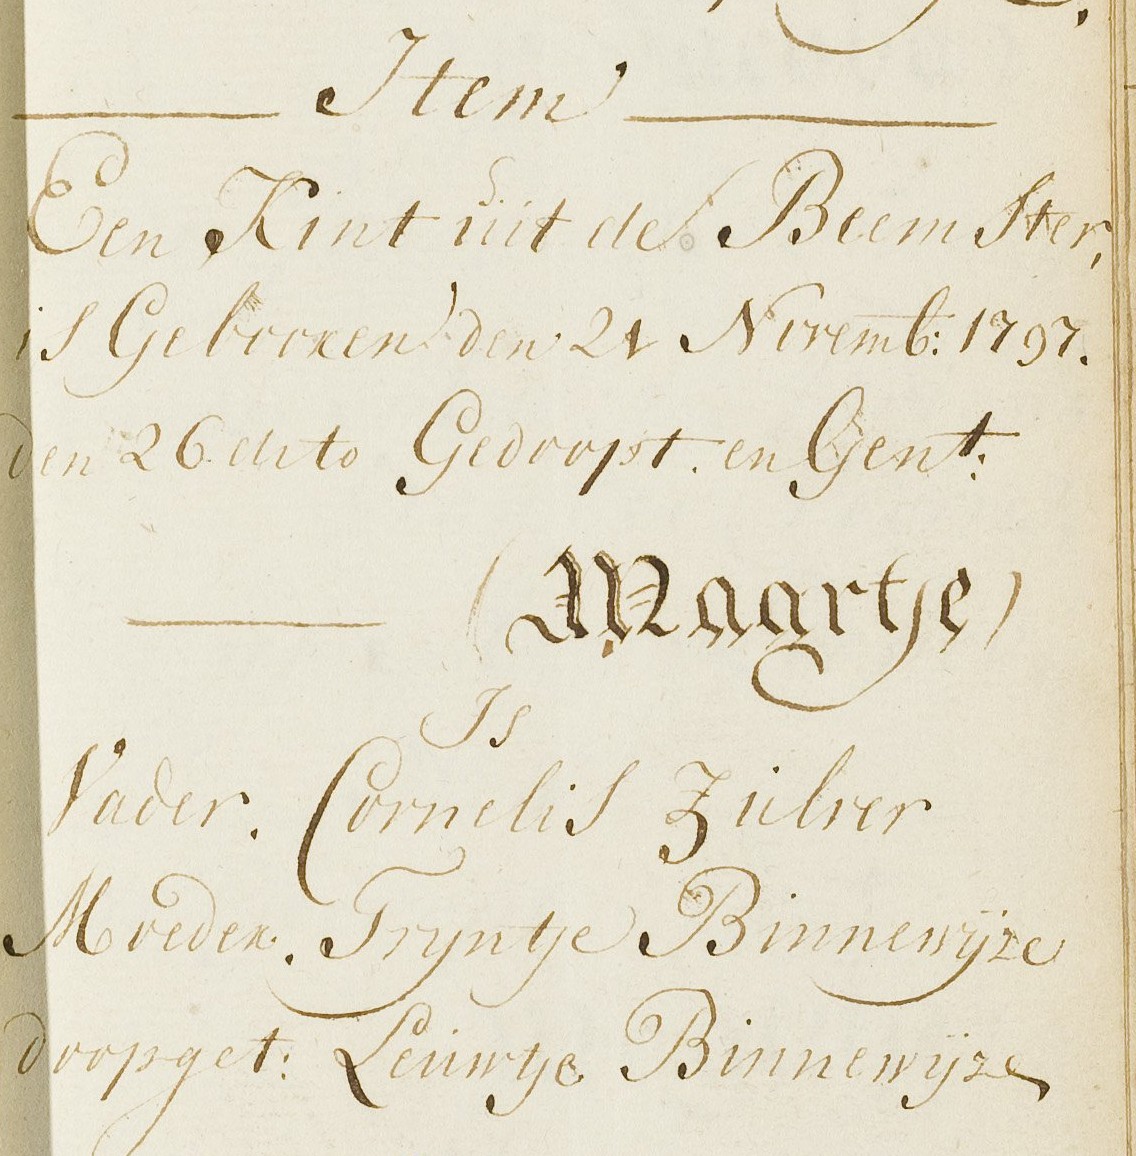 Item
Een Kint uit de Beemster,
is Gebooren den 21 Novemb: 1797.
den 26 dito Gedoopt. en Gent:
(Maartje)
Is
Vader. Cornelis Zuiver
Moeder. Tryntje Binnewijze
doopget: Leuwtje Binnewijze